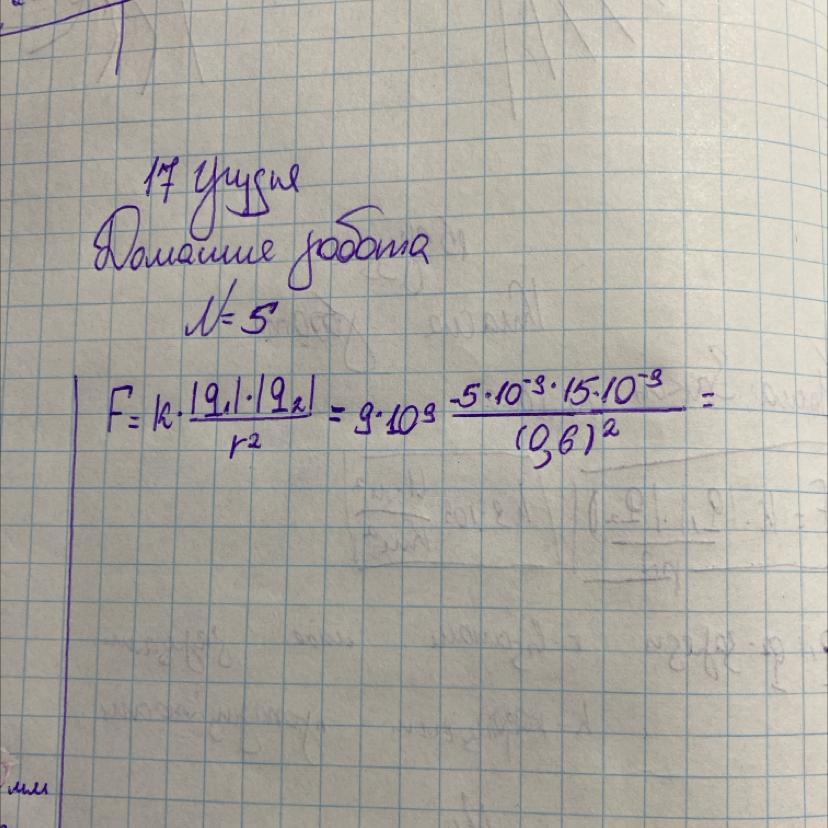 17 грудня
Домашнє робота
№ 5
F = k · |q₁|·|q₂| / r² = 9·10⁹ -5·10⁻⁹·15·10⁻⁹ / (0,6)² =
мм